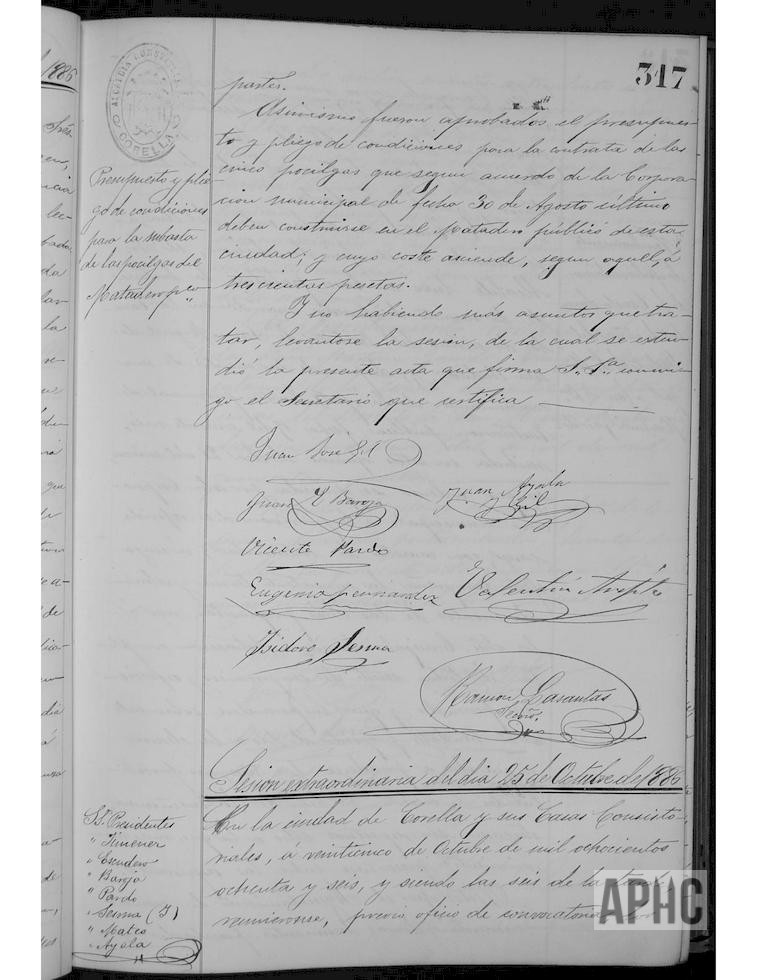 317
ALCALDÍA CONSTITUCIONAL
CORELLA
partes.
Asimismo fueron aprobados el presupues-
to y pliego de condiciones para la contrata de las
cinco pocilgas que segun acuerdo de la Corpora-
cion municipal de fecha 30 de Agosto último
deben construirse en el Matadero público de esta
ciudad; y cuyo coste asciende, segun aquel, á
trescientas pesetas.
Presupuesto y plie-
go de condiciones
para la subasta
de las pocilgas del
Matadero pco
Y no habiendo más asuntos que tra-
tar, levantose la sesion, de la cual se exten-
dió la presente acta que firma S. Sa. conmi-
go el Secretario que certifica
Juan José Gil
Juan Baroja
Juan Ayala
y Gil
Vicente Pardo
Eugenio Fernandez
Valentin
Isidoro Sesma
Ramon Lasantas
Secrio.
Sesion extraordinaria del dia 25 de Octubre de 1886
En la ciudad de Corella y sus Casas Consisto-
riales, á veinticinco de Octubre de mil ochocientos
ochenta y seis, y siendo las seis de la tarde
reunieronse, previo oficio de convocatoria
Ss. Presidentes
" Jimenez
" Escudero
" Baroja
" Pardo
" Sesma (I)
" Mateo
" Ayala
APHC